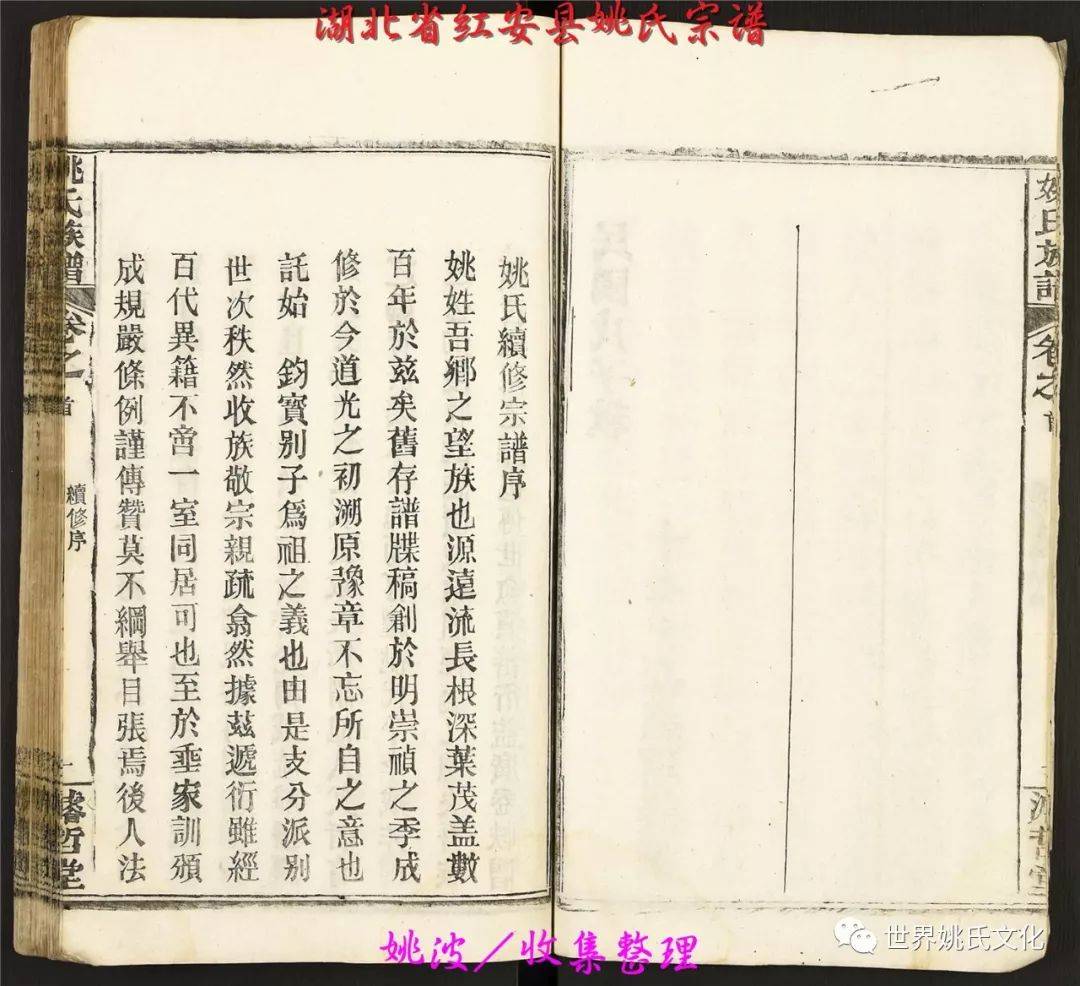 湖北省红安县姚氏宗谱
姚氏族譜
卷之
首
姚氏續修宗譜序
姚姓吾鄉之望族也源遠流長根深葉茂盖數
百年於兹矣舊存譜牒稿創於明崇禎之季成
修於今道光之初溯原豫章不忘所自之意也
託始 鈞寶别子爲祖之義也由是支分派别
世次秩然收族敬宗親疏翕然據兹遞衍雖經
百代異籍不啻一室同居可也至於埀家訓頒
成規嚴條例謹傳贊莫不綱舉目張焉後人法
姚氏族譜
卷之
首
續修序
一
濬哲堂
姚波／收集整理
世界姚氏文化